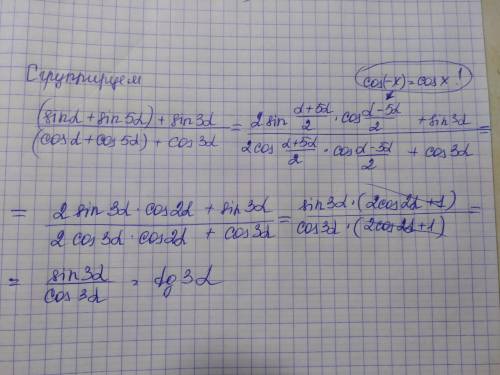 cos(-x) = cos x !
Сгруппируем
((sinα + sin5α) + sin3α)/((cosα + cos5α) + cos3α) = (2 sin (α+5α)/2 · cos (α-5α)/2 + sin3α)/(2 cos (α+5α)/2 · cos (α-5α)/2 + cos3α) =
= (2 sin 3α · cos2α + sin3α)/(2 cos3α · cos2α + cos3α) = (sin3α · (2cos2α+1))/(cos3α · (2cos2α+1)) =
= sin3α/cos3α = tg 3α